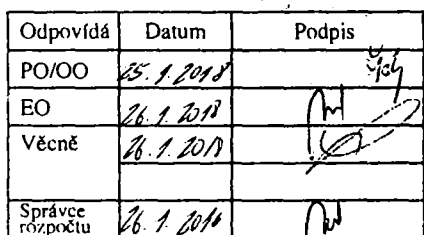 Odpovídá Datum Podpis
PO/OO 25. 1. 2018
EO 26. 1. 2018
Věcně 26. 1. 2018
Správce
rozpočtu 26. 1. 2018